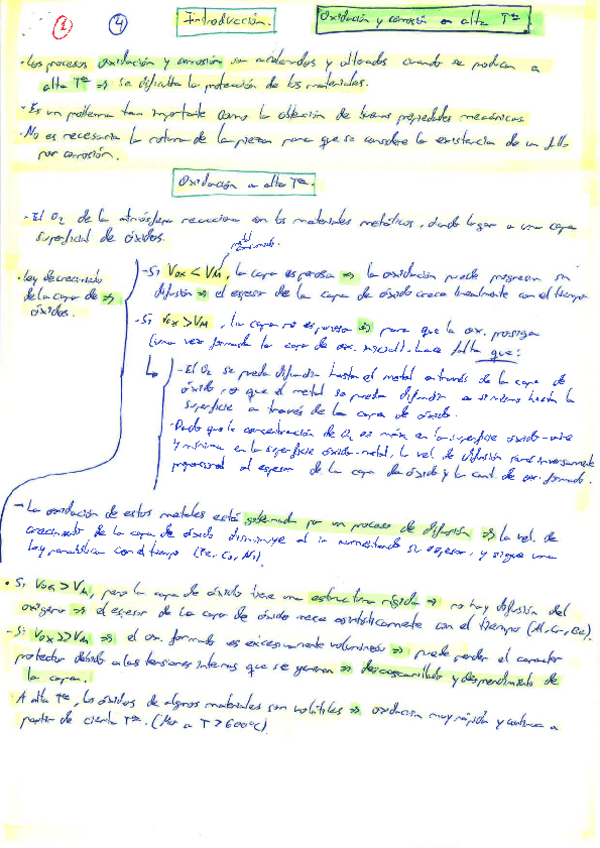 1 4 Introducción. Oxidación y corrosión en alta Tª
· Los procesos oxidación y corrosión son acelerados y alterados cuando se producen a
alta Tª ⇒ se dificulta la protección de los materiales.
· Es un problema tan importante como la obtención de buenas propiedades mecánicas.
· No es necesaria la rotura de la pieza para que se considere la existencia de un fallo
por corrosión.
Oxidación en alta Tª.
- El O2 de la atmósfera reacciona con los materiales metálicos, dando lugar a una capa
superficial de óxidos.
· Ley de crecimiento
de la capa de ⇒
óxidos.
- Si Vox < VM, la capa es porosa ⇒ la oxidación puede progresar sin
difusión ⇒ el espesor de la capa de óxido crece linealmente con el tiempo
- Si Vox > VM, la capa no es porosa ⇒ para que la ox. prosiga
(una vez formada la capa de ox. inicial) hace falta que:
- El O2 se pueda difundir hasta el metal a través de la capa de
óxido, o que el metal se pueda difundir a sí mismo hasta la
superficie a través de la capa de óxido.
- Dado que la concentración de O2 es máx. en la superficie óxido-aire
y mínima en la superficie óxido-metal, la vel. de difusión será inversamente
proporcional al espesor de la capa de óxido y la cant. de ox. formado.
- La oxidación de estos metales está gobernada por un proceso de difusión ⇒ la vel. de
crecimiento de la capa de óxido disminuye al ir aumentando su espesor, y sigue una
ley parabólica con el tiempo (Fe, Co, Ni).
· Si Vox > VM, pero la capa de óxido tiene una estructura rígida ⇒ no hay difusión del
oxígeno ⇒ el espesor de la capa de óxido crece asintóticamente con el tiempo (Al, Cr, Be).
- Si Vox >> VM ⇒ el ox. formado es excesivamente voluminoso ⇒ puede perder el carácter
protector debido a las tensiones internas que se generan ⇒ descascarillado y desprendimiento de
la capa.
A alta Tª, los óxidos de algunos materiales son volátiles ⇒ oxidación muy rápida y continua a
partir de cierta Tª. (Mo a T > 600ºC)